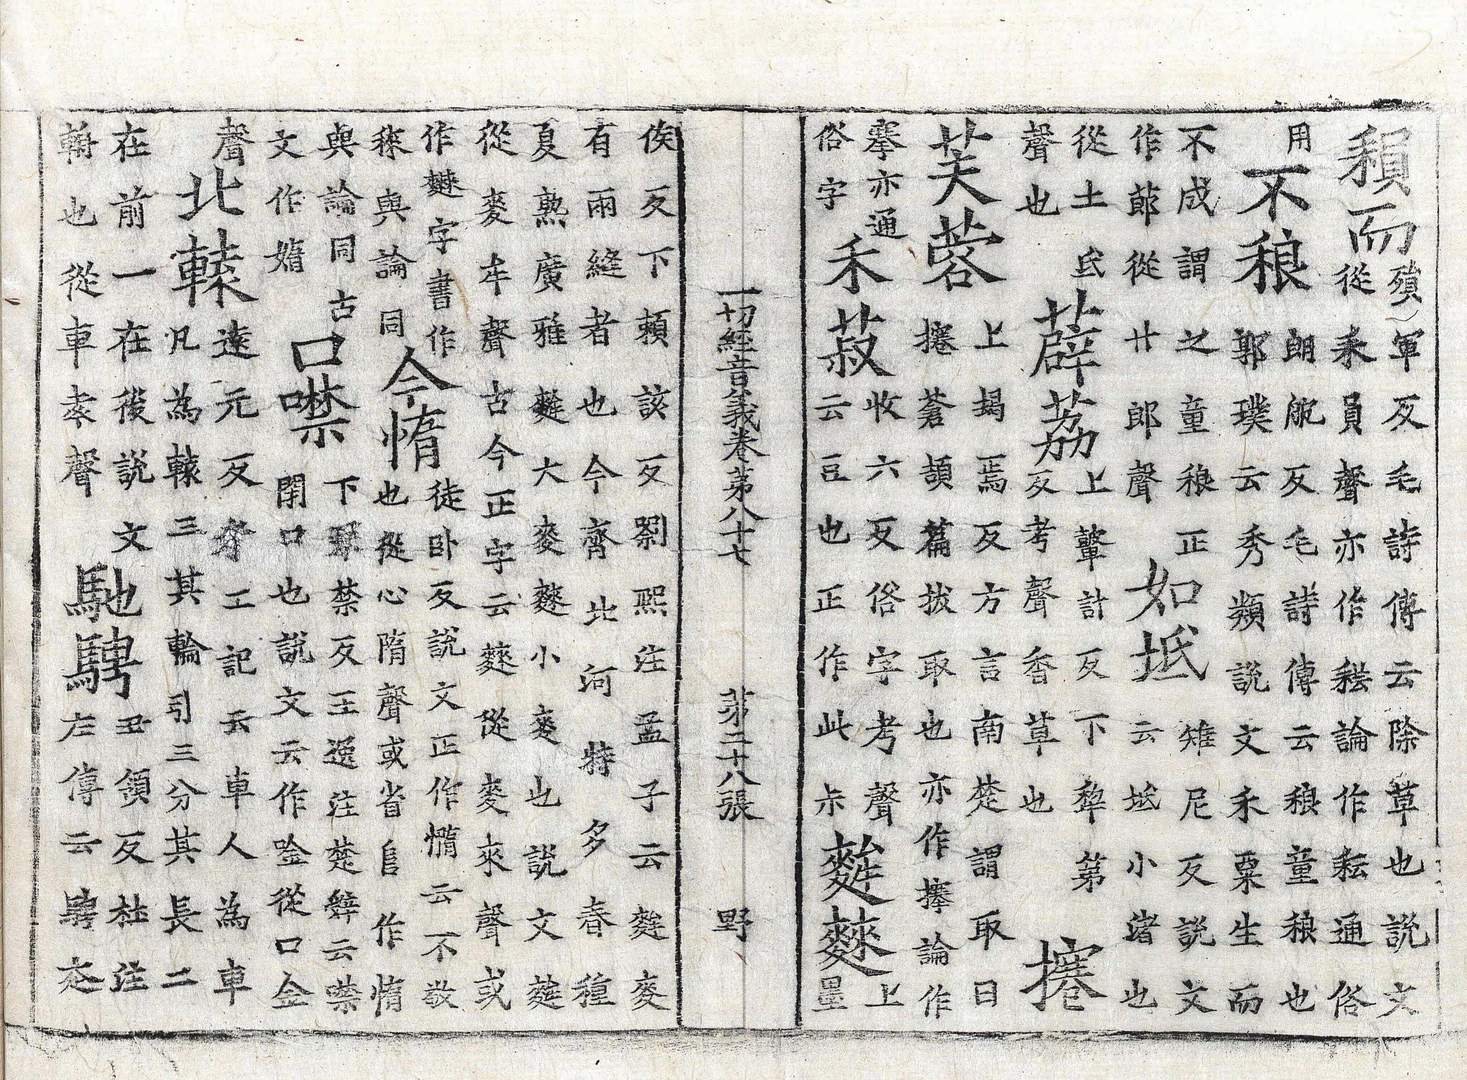 䅡而
殞軍反毛詩傳云除草也說文
從耒員聲亦作秐論作耘通俗
用
不稂
朗郎反毛詩傳云稂童稂也
郭璞云秀類說文禾粟生而
不成謂之童稂正
作蓈從艹郎聲
如坻
雉尼反說文
云坻小渚也
從土氐
聲也
薜荔
上鼙計反下犂第
反考聲香草也
攓
芙蓉
上朅焉反方言南楚謂取曰
攓蒼頡篇拔取也亦作搴論作
搴亦通
俗字
禾菽
收六反俗字考聲
云豆也正作此尗
麰䴢
上
墨
侯反下賴該反劉熙注孟子云麰麥
有兩縫者也今齊北河特多春種
夏熟廣雅麰大麥䴢小麥也說文麰
從麥牟聲古今正字云䴢從麥來聲或
作䴢字書作
𥡲與論同
令惰
徒卧反說文正作憜云不敬
也從心隋聲或省𨸏作惰
與論同古
文作媠
口噤
下琴禁反王逸注楚辭云噤
閉口也說文云作唫從口金
聲
北轅
遠元反考工記云車人為車
凡為轅三其輪引三分其長二
在前一在後說文
輈也從車袁聲
馳騁
丑領反杜注
左傳云騁走
一切經音義卷第八十七 第二十八張 野